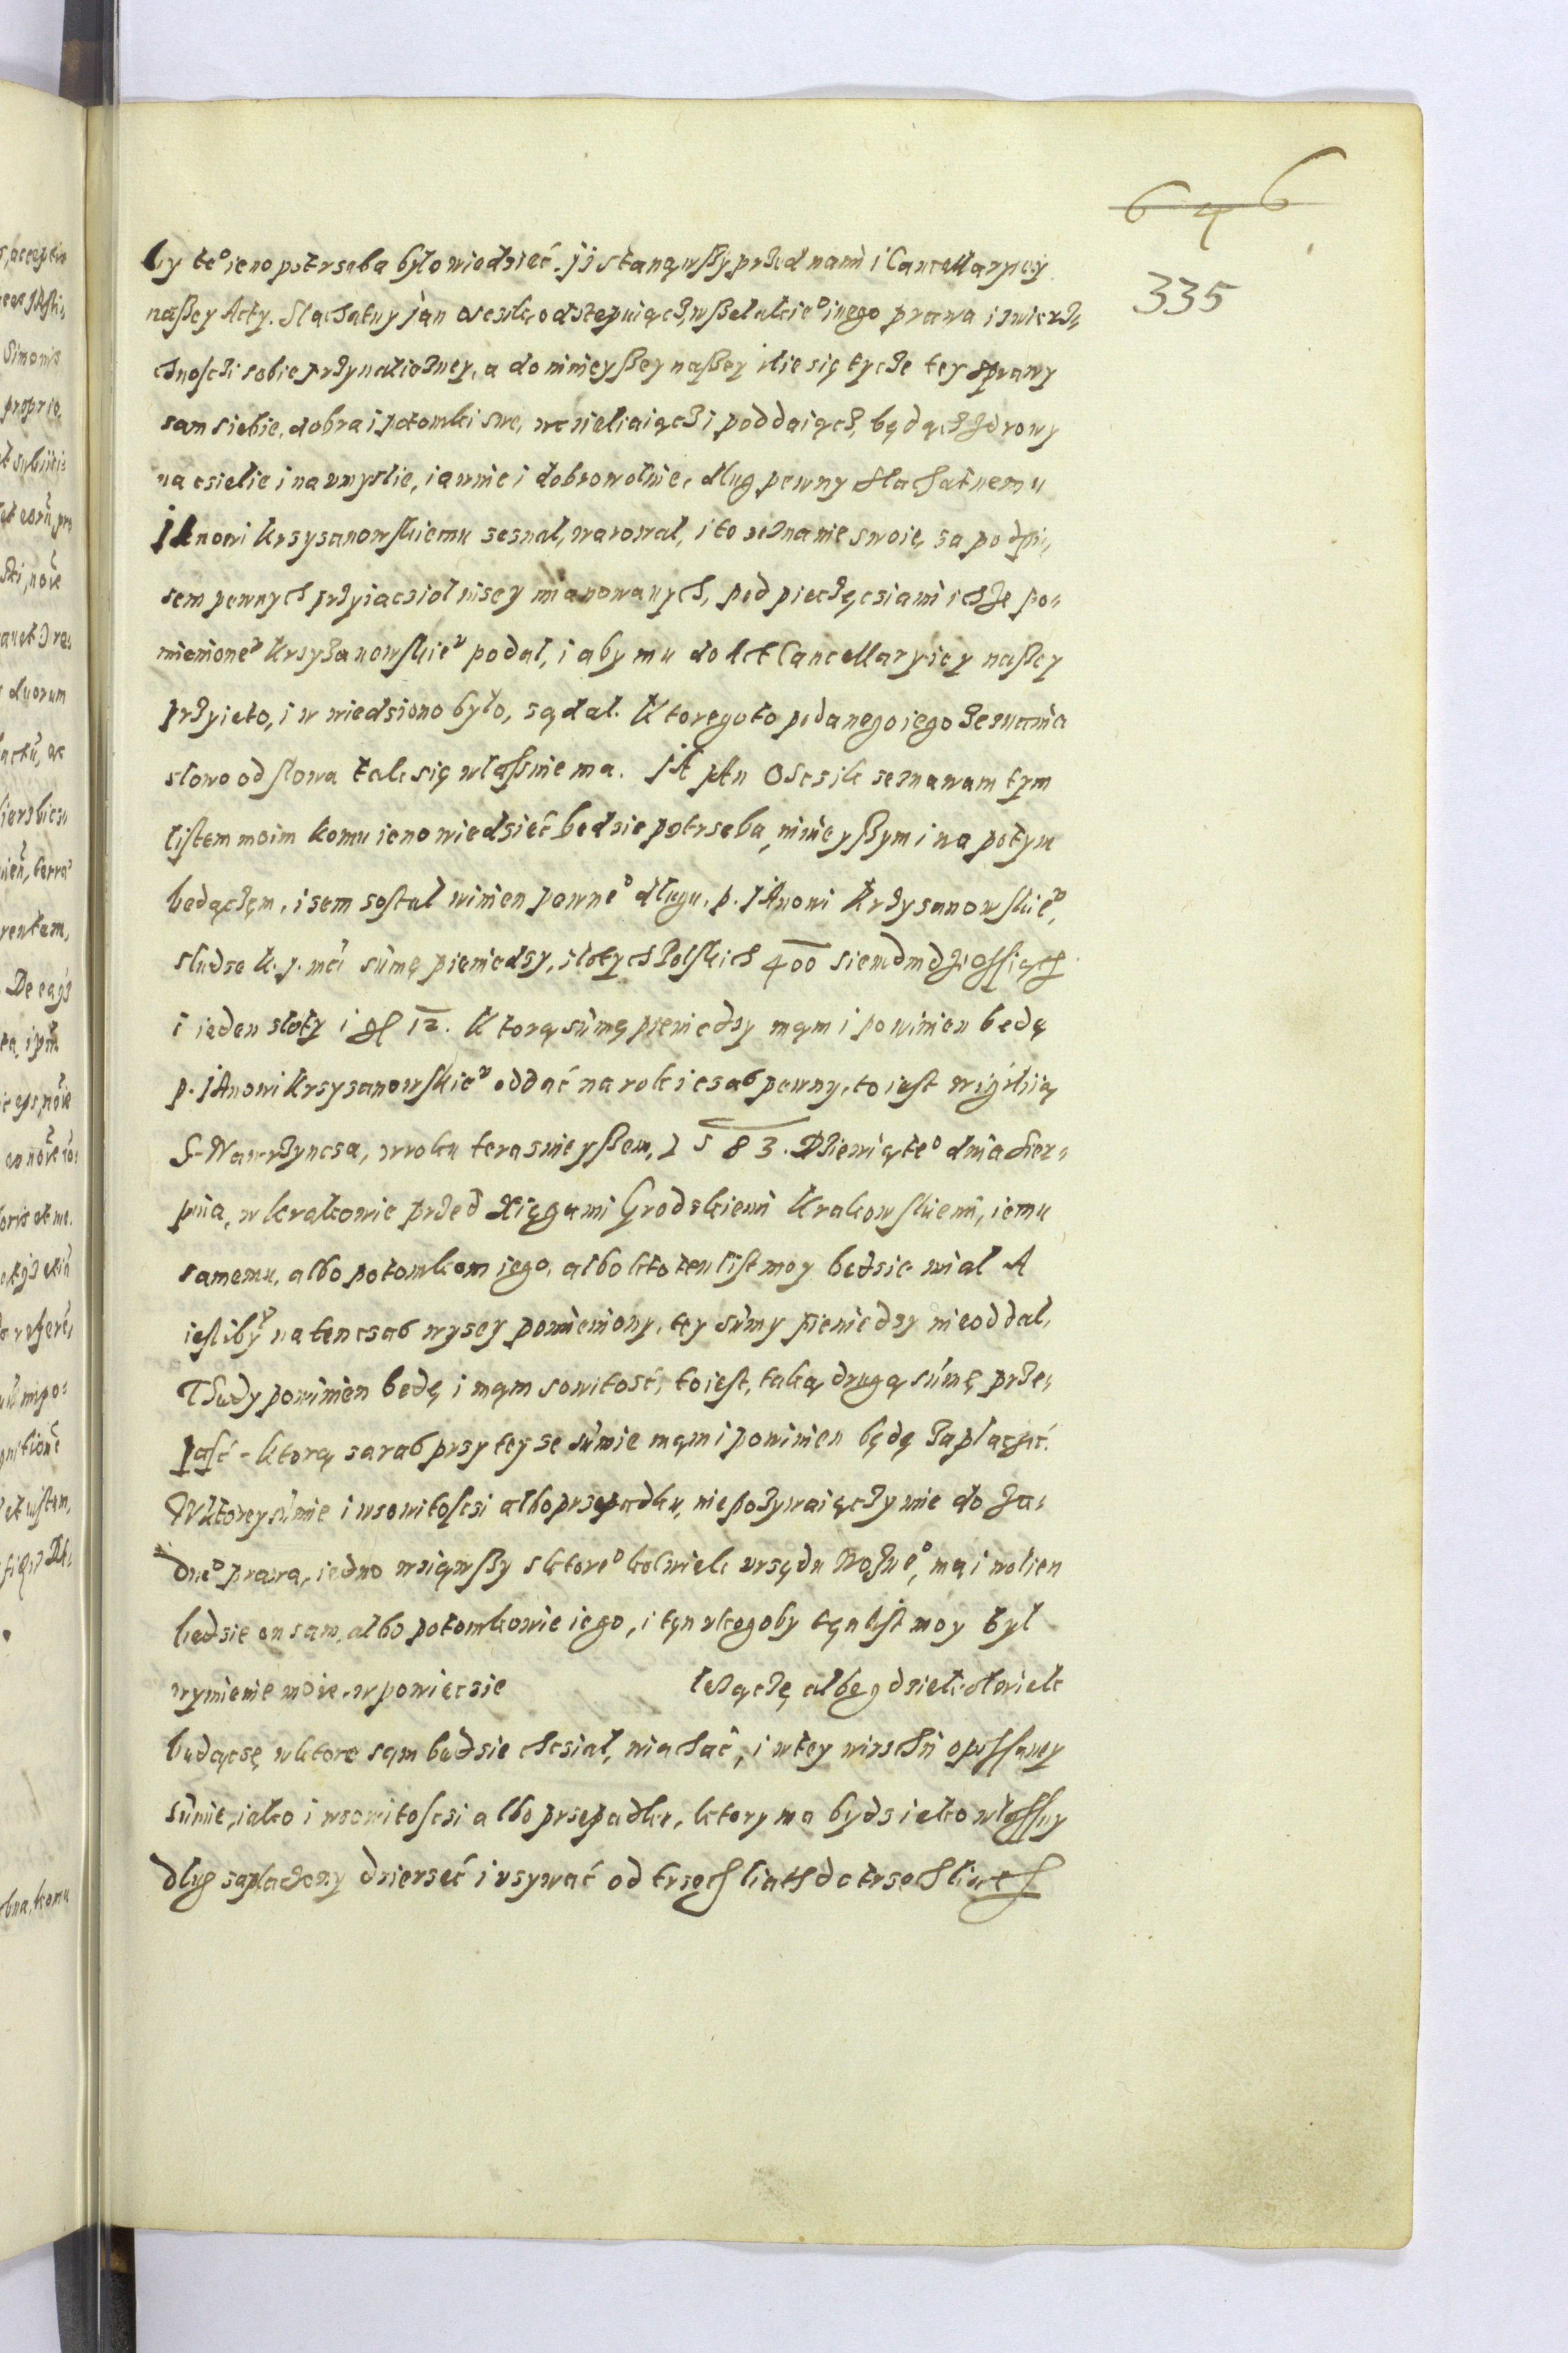 646
335
by te° ieno potrseba było wiedsieć. Jż stanąwszy przed nami i Cancellaryiey
naszey Acty. Slachatny Jan Osesik, odstepuiącz wszelakie° inego prawa i zwierz=
chnosczi sobie przynaliezney, a do ninieyszey naszey ilie się tycze tey sprawy
sam siebie, dobra i potomki swe, wczieliaiącz i poddaiącz, będącz zdrowy
na csielie i na umyslie, iawnie i dobrowolnie, dlug pewny slachatnemu
JAnowi Krsysanowskiemu sesnal, warowal, i to zeznanie swoie, sa podpi=
sem pewnych przyiacsiol nisey mianowanych, pod pieczęcsiami ichze po=
mienione° Krsyzanowskie° podal, i aby mu do Act Cancellaryiey naszey
przyieto, i w wiedsiono było, sądal. Ktoregoto podanego iego zeznania
slowo od slowa tak się wlassnie ma. JA JAn Osesik seznawam tym
listem moim komu ieno wiedsieć bedsie potrseba, ninieyszym i na potym
bedączęm, isem sostal winien pewne° dlugu, p. JAnowi Krzysanowskie°,
sludse k. j. mci sumę pieniedsy, slotych Polskich 400 siendmdziessiąth
i ieden sloty i gl 12. Ktorą sumę pieniedsy mąm i powinien będę
p. JAnowi Krsysanowskie° oddać na rok i csas pewny, to iest wigilią
S. Wawrzyncsa, w roku terasnieyszem, 1583. Dziewiąte° dnia sier=
pnia, w Krakowie przed Xięgami Grodskiemi Krakowskiemi, iemu
samemu, albo potomkom iego, albo kto ten list moy bedsie mial A
iesliby na ten csas wysey pomieniony, tey sumy pieniedsy nie oddal,
Thedy powinien będę i mąm sowitość, to iest, taką drugą sumę prze=
pasć - ktorą saras przy tey se sumie mąm i powinien będę zaplaczić.
W ktorey sumie i w sowitoscsi albo przepadku, nie pozywaiączy mie do za=
dne° prawa, iedno wsiąwszy s ktore° kolwiek ursędu woźne°, mą i wolien
bedsie on sam, albo potomkowie iego, i tęn u kogoby tęn list moy był
w ymienie moie, w powiecsie lezączę albo gdsiekolwiek
będącsę w ktore sąm bedsie chcsiał, wiachać, i w tey wirschu opissaney
sumie, iako i w sowitoscsi albo prsepadku, ktory ma bydz iako wlassny
dlug saplaczony dzierseć i usywać od trsęch liath do trsęch liath